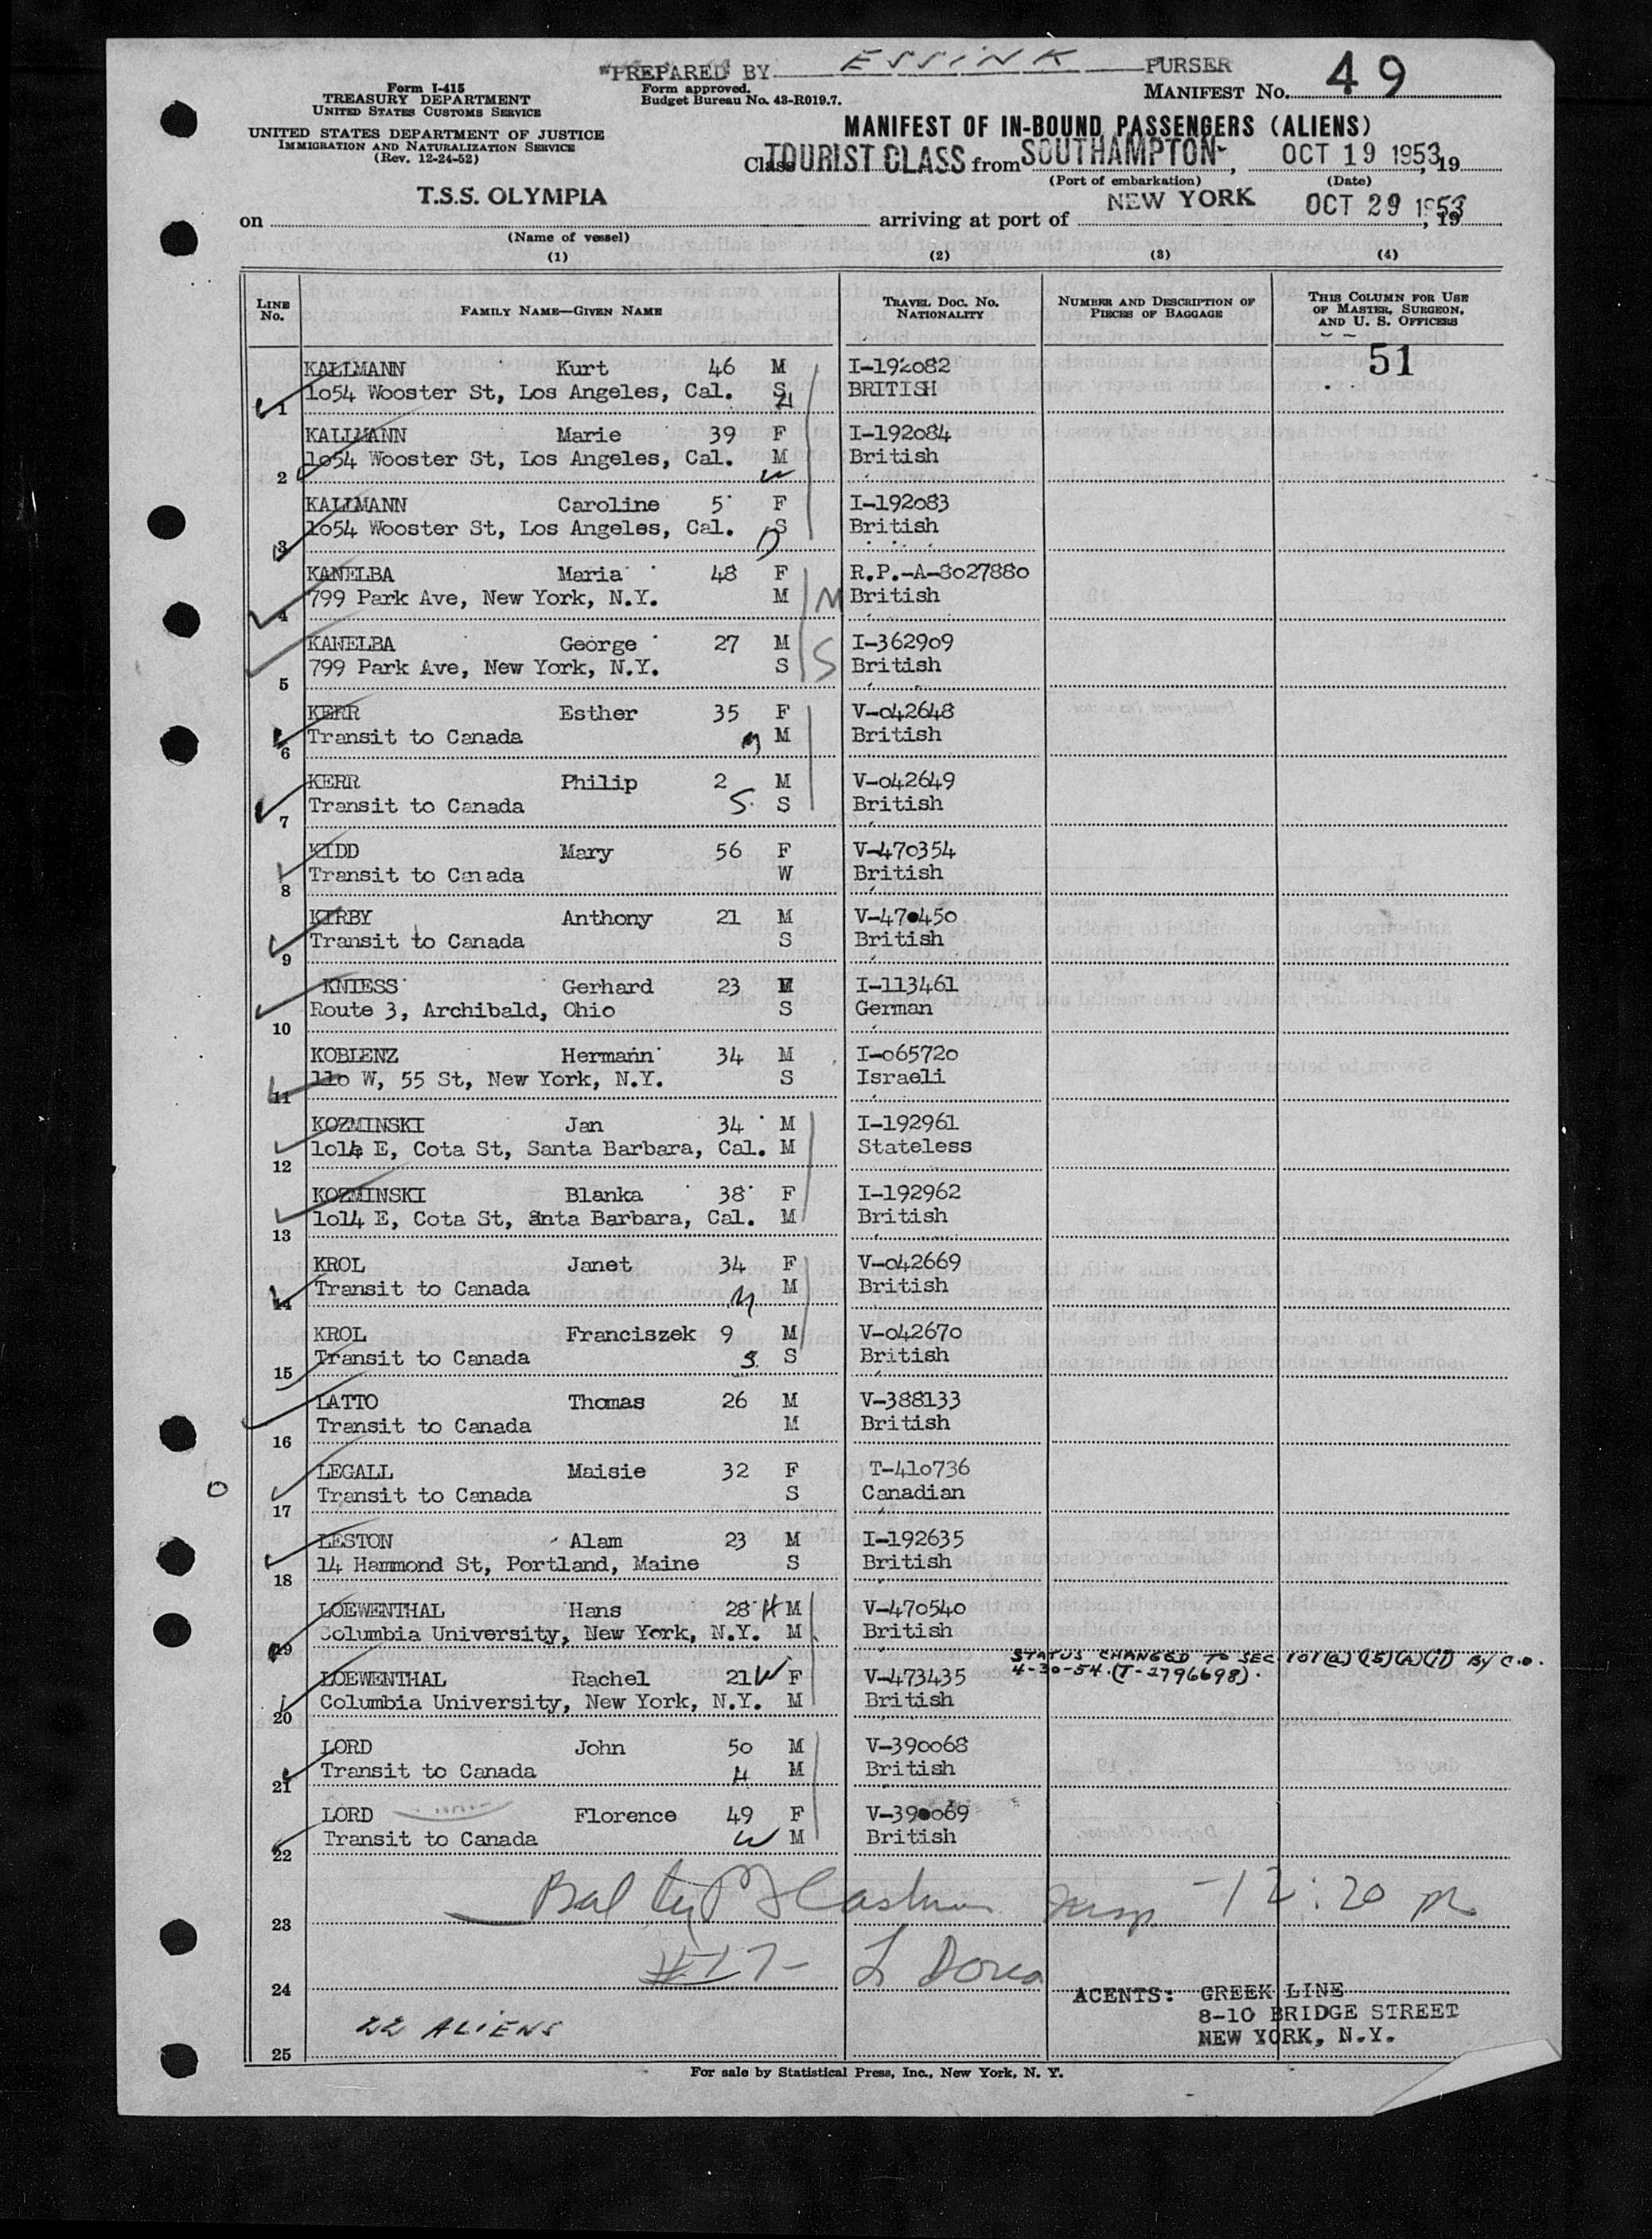 "PREPARED BY ESSINK PURSER
Form I-415
TREASURY DEPARTMENT
UNITED STATES CUSTOMS SERVICE
UNITED STATES DEPARTMENT OF JUSTICE
IMMIGRATION AND NATURALIZATION SERVICE
(Rev. 12-24-52)
Form approved.
Budget Bureau No. 43-R019.7.
MANIFEST NO. 49
MANIFEST OF IN-BOUND PASSENGERS (ALIENS)
Class TOURIST CLASS from SOUTHAMPTON, OCT 19 1953, 19
(Port of embarkation) (Date)
T.S.S. OLYMPIA NEW YORK OCT 29 1953
on arriving at port of , 19
(Name of vessel)
(1) (2) (3) (4)
LINE NO. FAMILY NAME—GIVEN NAME TRAVEL DOC. NO. NATIONALITY NUMBER AND DESCRIPTION OF PIECES OF BAGGAGE THIS COLUMN FOR USE OF MASTER, SURGEON, AND U. S. OFFICERS
51
KALLMANN Kurt 46 M I-192o82
1o54 Wooster St, Los Angeles, Cal. S H BRITISH
1
KALLMANN Marie 39 F I-192o84
1o54 Wooster St, Los Angeles, Cal. M British
2 W
KALLMANN Caroline 5 F I-192o83
1o54 Wooster St, Los Angeles, Cal. D S British
3
KANELBA Maria 48 F R.P.-A-8o2788o
799 Park Ave, New York, N.Y. M M British
4
KANELBA George 27 M I-3629o9
799 Park Ave, New York, N.Y. S S British
5
KERR Esther 35 F V-o42648
Transit to Canada M M British
6
KERR Philip 2 M V-o42649
Transit to Canada S. S British
7
KIDD Mary 56 F V-47o354
Transit to Canada W British
8
KIRBY Anthony 21 M V-47o45o
Transit to Canada S British
9
KNIESS Gerhard 23 M I-113461
Route 3, Archibald, Ohio S German
10
KOBLENZ Hermann 34 M I-o6572o
11o W, 55 St, New York, N.Y. S Israeli
11
KOZMINSKI Jan 34 M I-192961
1o14 E, Cota St, Santa Barbara, Cal. M Stateless
12
KOZMINSKI Blanka 38 F I-192962
1o14 E, Cota St, Santa Barbara, Cal. M British
13
KROL Janet 34 F V-o42669
Transit to Canada M M British
14
KROL Franciszek 9 M V-o4267o
Transit to Canada S. S British
15
LATTO Thomas 26 M V-388133
Transit to Canada M British
16
LEGALL Maisie 32 F T-41o736
Transit to Canada S Canadian
17
LESTON Alam 23 M I-192635
14 Hammond St, Portland, Maine S British
18
LOEWENTHAL Hans 28 H M V-47o54o
Columbia University, New York, N.Y. M British
19 STATUS CHANGED TO SEC 101(a)(15)(A)(i) By C.O.
4-30-54. (T-2796698).
LOEWENTHAL Rachel 21 W F V-473435
Columbia University, New York, N.Y. M British
20
LORD John 5o M V-39oo68
Transit to Canada H M British
21
LORD Florence 49 F V-39oo69
Transit to Canada W M British
22
Insp -12:20 PM
23
#17- L
24
AGENTS: GREEK LINE
8-10 BRIDGE STREET
NEW YORK, N.Y.
22 ALIENS
25
For sale by Statistical Press, Inc., New York, N. Y.